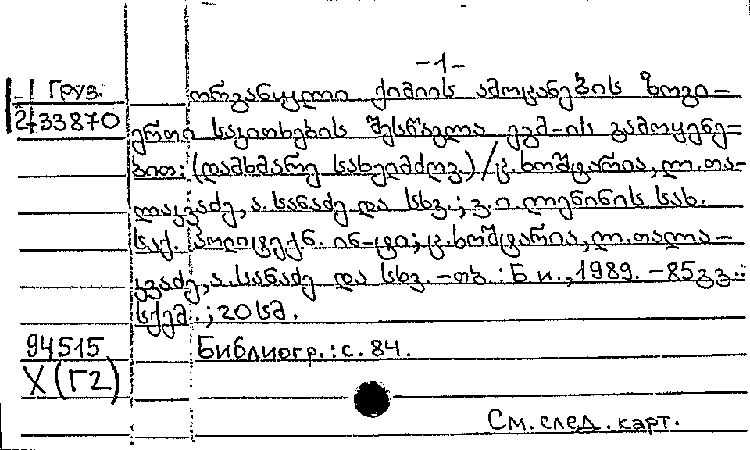 -1-
Груз. ორგანული ქიმიის ამოცანების ზოგი-
2-33870 ერთი საკითხების შესწავლა ეგმ-ის გამოყენე-
ბით: (დამხმარე სახელმძღვ.) / ც. ხოშტარია, ლ. თა-
ლაკვაძე, ა. სანაძე და სხვ.; ვ. ი. ლენინის სახ.
საქ. პოლიტექნ. ინ-ტი; ც. ხოშტარია, ლ. თალა-
კვაძე, ა. სანაძე და სხვ. - თბ. : Б. и., 1989. - 85 გვ. :
სქემ. ; 20 სმ.
94515 Библиогр.: с. 84.
X (Г2)
См. след. карт.